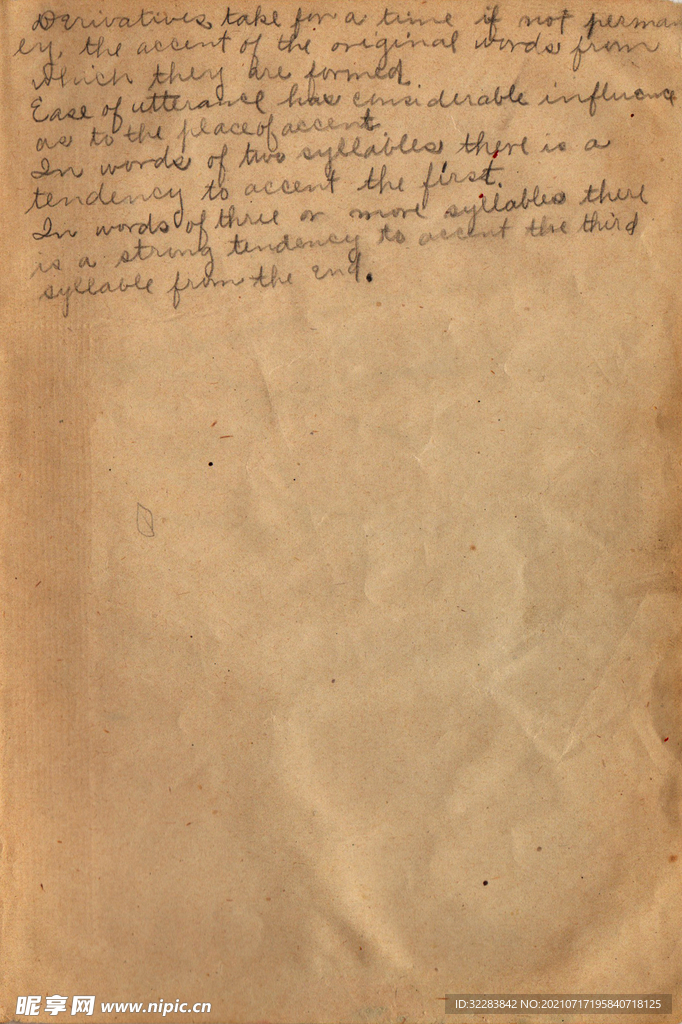 Derivatives take for a time if not perman
ey, the accent of the original words from
which they are formed
Ease of utterance has considerable influence
as to the place of accent.
In words of two syllables there is a
tendency to accent the first.
In words of three or more syllables there
is a strong tendency to accent the third
syllable from the end.
昵享网 www.nipic.cn
ID:32283842 NO:20210717195840718125